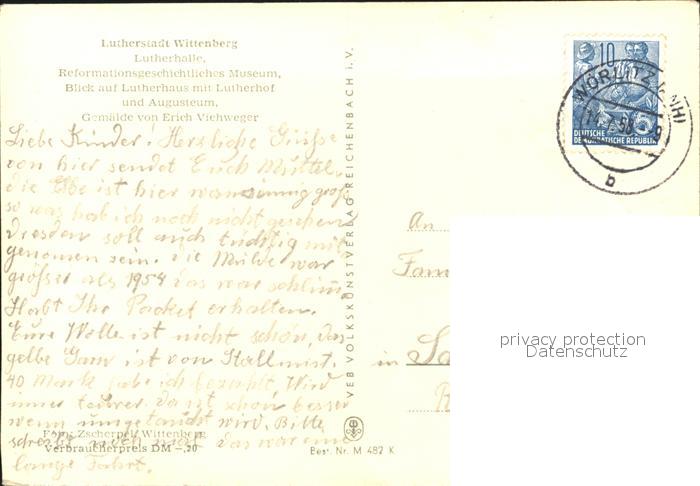 Lutherstadt Wittenberg
Lutherhalle,
Reformationsgeschichtliches Museum,
Blick auf Lutherhaus mit Lutherhof
und Augusteum,
Gemälde von Erich Viehweger
Liebe Kinder! Herzliche Grüße
von hier sendet Euch Muttel.
die Elbe ist hier groß
so was hab ich noch nicht gesehen
Dresden soll auch tüchtig mit
genomen sein. die Mulde war
größer als 1954 das war schlim
Habt Ihr Packet erhalten.
Eure Wolle ist nicht schön, das
gelbe Garn ist von
40 Mark habe ich bezahlt. Wird
imer teurer. da ist schon besser
wenn umgetauscht wird. Bitte
schreibt das war eine
lange Fahrt.
Foto: Zscherpel, Wittenberg
Verbraucherpreis DM -,20
VEB VOLKSKUNSTVERLAG REICHENBACH I. V.
Best. Nr. M 482 K
10
DEUTSCHE
DEMOKRATISCHE REPUBLIK
WÖRLITZ (ANH)
b
An
Fam
in
privacy protection
Datenschutz